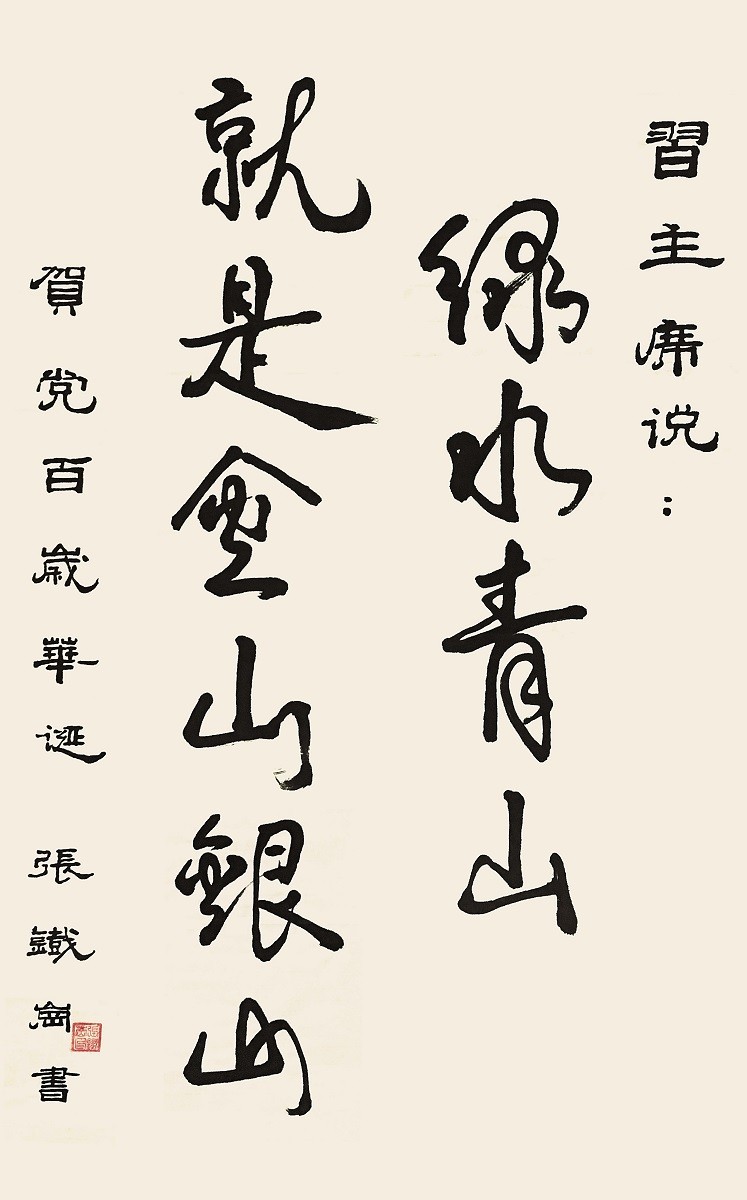 習主席说：
绿水青山
就是金山銀山
賀党百歲華诞 張鐵崗書